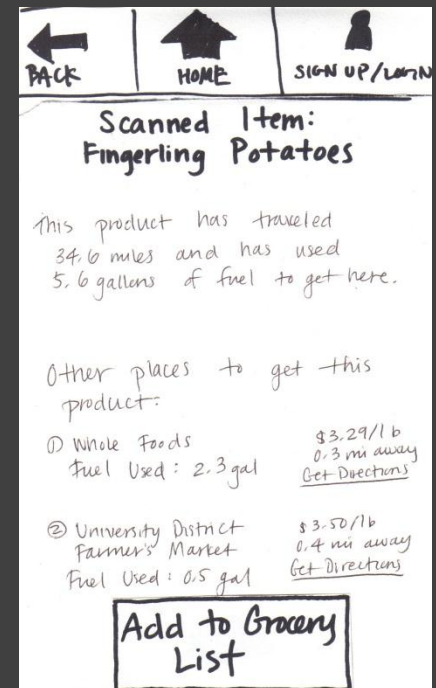 BACK
HOME
SIGN UP/LOGIN
Scanned Item:
Fingerling Potatoes
This product has traveled
34.6 miles and has used
5.6 gallons of fuel to get here.
Other places to get this
product:
① Whole Foods
Fuel Used: 2.3 gal
$3.29/lb
0.3 mi away
Get Directions
② University District
Farmer's Market
Fuel Used: 0.5 gal
$3.50/lb
0.4 mi away
Get Directions
Add to Grocery
List